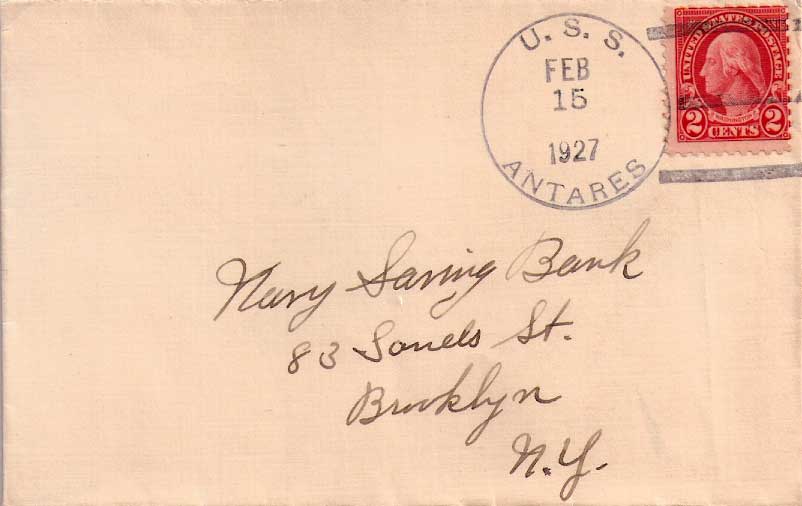 U. S. S.
FEB
15
1927
ANTARES
UNITED STATES POSTAGE
WASHINGTON
2 CENTS 2
Navy Saving Bank
83 Sands St.
Brooklyn
N.Y.